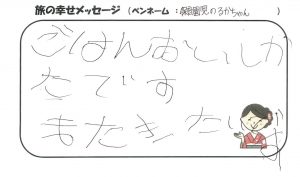 旅の幸せメッセージ (ペンネーム : 園児のるかちゃん )
ごはんおいしか
たです
もたきたいです